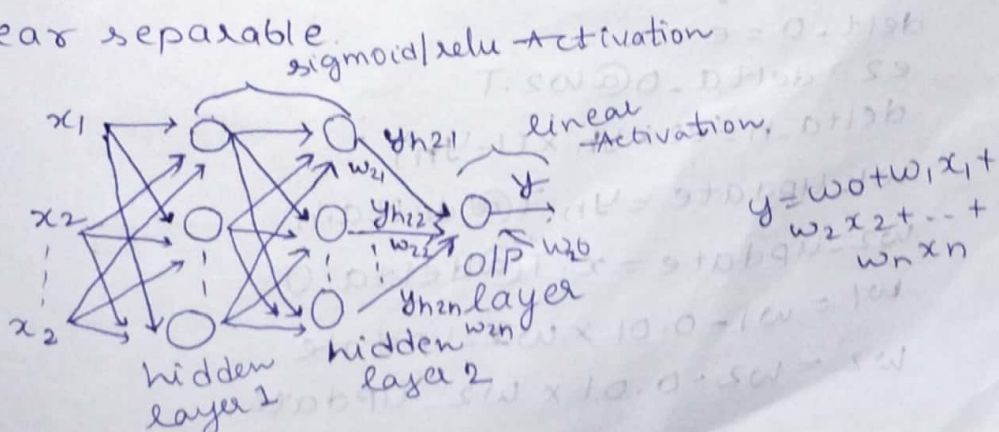 ear separable.
sigmoid/relu Activation
x1
x2
x2
yh21
w21
yh22
w22
yh2n
w2n
linear
Activation,
y
w20
O/P
layer
hidden
layer 1
hidden
layer 2
y = w0 + w1x1 +
w2x2 + ... +
wn xn